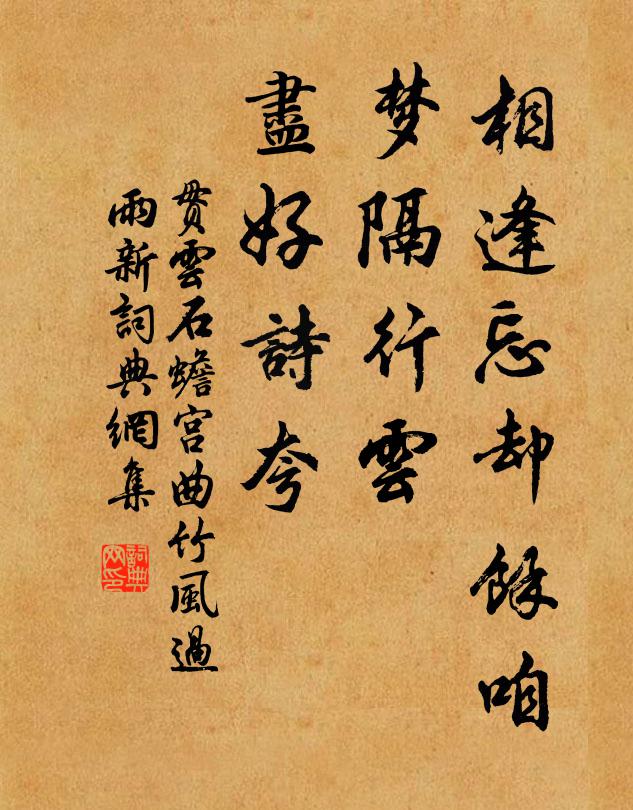 相逢忘却餘咱
梦隔行雲
盡好詩夸
贯雲石蟾宫曲竹風過
雨新詞典網集
詞典
网印